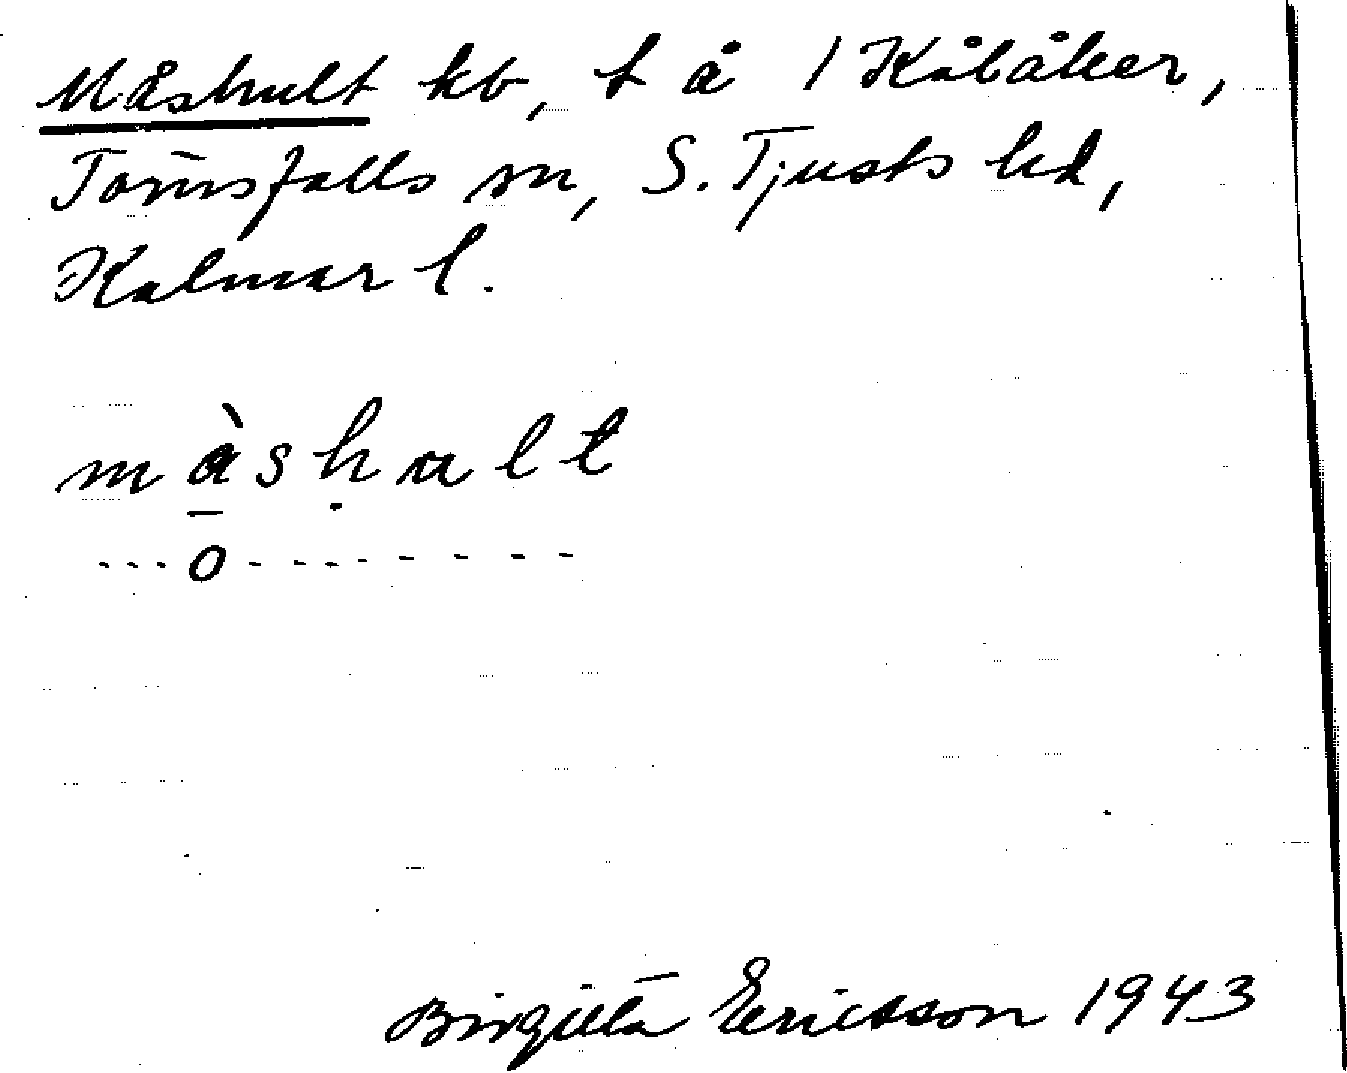 Måshult kb, t å 1 Kålåker,
Törnsfalls sn, S. Tjusts hd,
Kalmar l.
måshult
---o--------
Birgitta Ericsson 1943